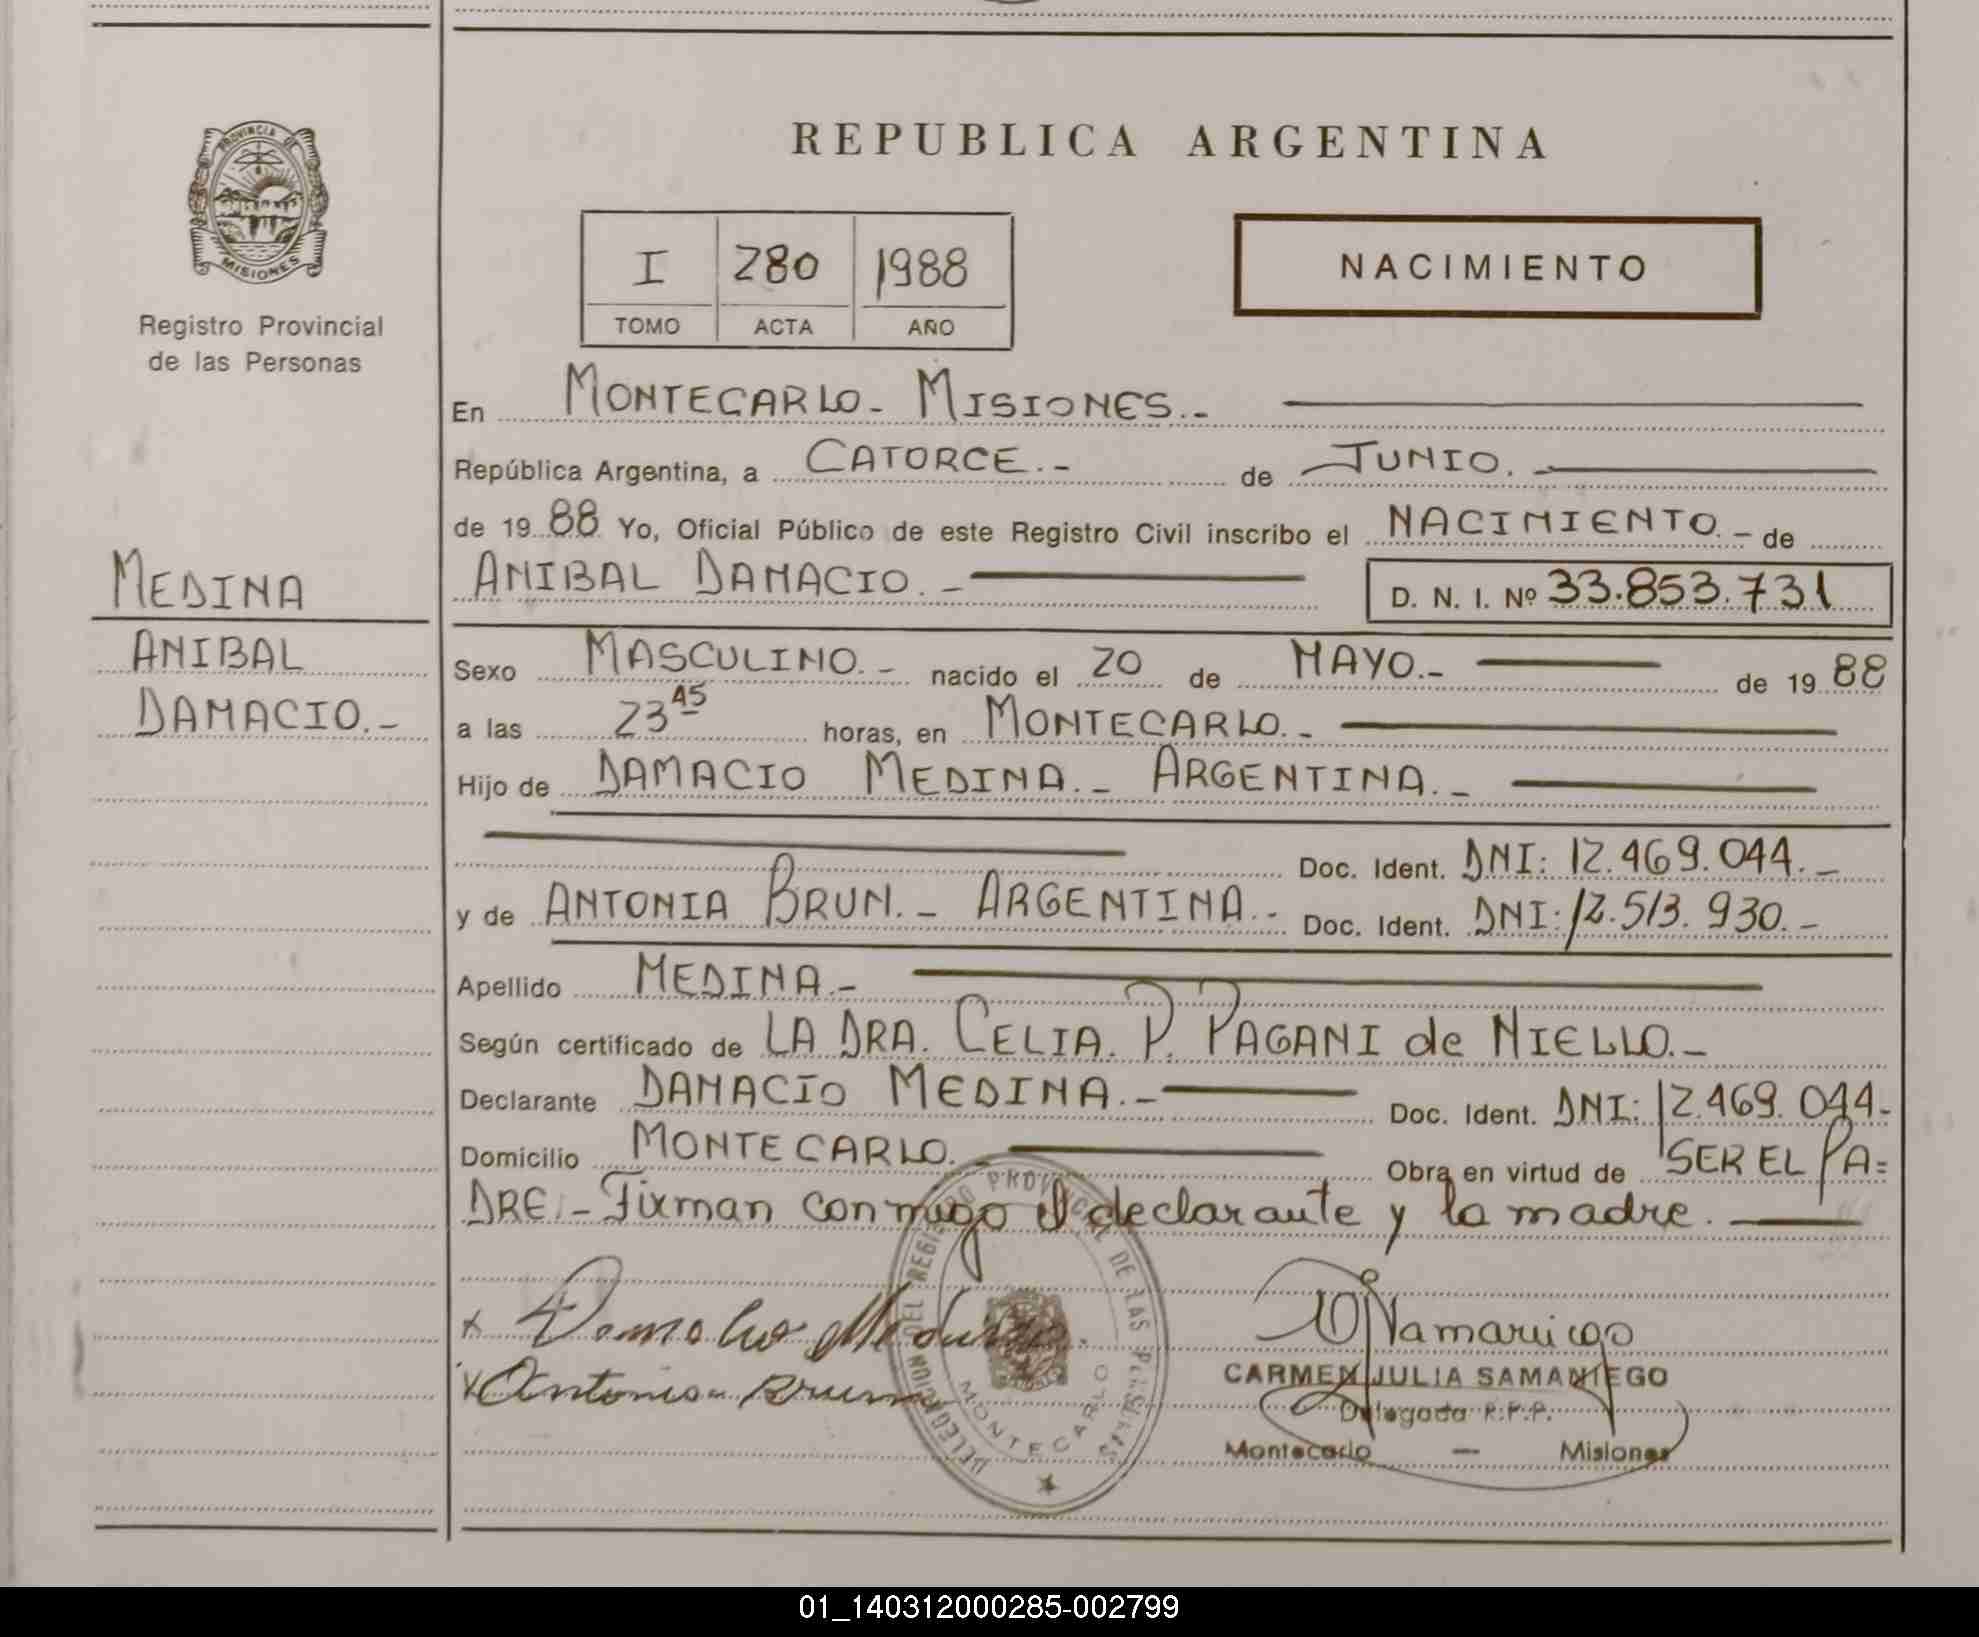 REPUBLICA ARGENTINA
PROVINCIA DE
MISIONES
Registro Provincial
de las Personas
I 280 1988
TOMO ACTA AÑO
NACIMIENTO
MEDINA
ANIBAL
DAMACIO.-
En MONTECARLO - MISIONES.-
República Argentina, a CATORCE.- de JUNIO.-
de 1988 Yo, Oficial Público de este Registro Civil inscribo el NACIMIENTO.- de
ANIBAL DAMACIO.- D. N. I. Nº 33.853.731
Sexo MASCULINO.- nacido el 20 de MAYO.- de 1988
a las 23 45 horas, en MONTECARLO.-
Hijo de DAMACIO MEDINA.- ARGENTINA.-
Doc. Ident. DNI: 12.469.044.-
y de ANTONIA BRUN.- ARGENTINA.- Doc. Ident. DNI: 12.513.930.-
Apellido MEDINA.-
Según certificado de LA DRA. CELIA. P. PAGANI de NIELLO.-
Declarante DAMACIO MEDINA.- Doc. Ident. DNI: 12.469.044-
Domicilio MONTECARLO.- Obra en virtud de SER EL PA=
DRE.- Firman conmigo el declarante y la madre.
x Damacio Medina.
x Antonia Brun
DELEGACION DEL REGISTRO PROVINCIAL DE LAS PERSONAS
MONTECARLO
CARMEN JULIA SAMANIEGO
Delegada R.P.P.
Montecarlo — Misiones
01_140312000285-002799